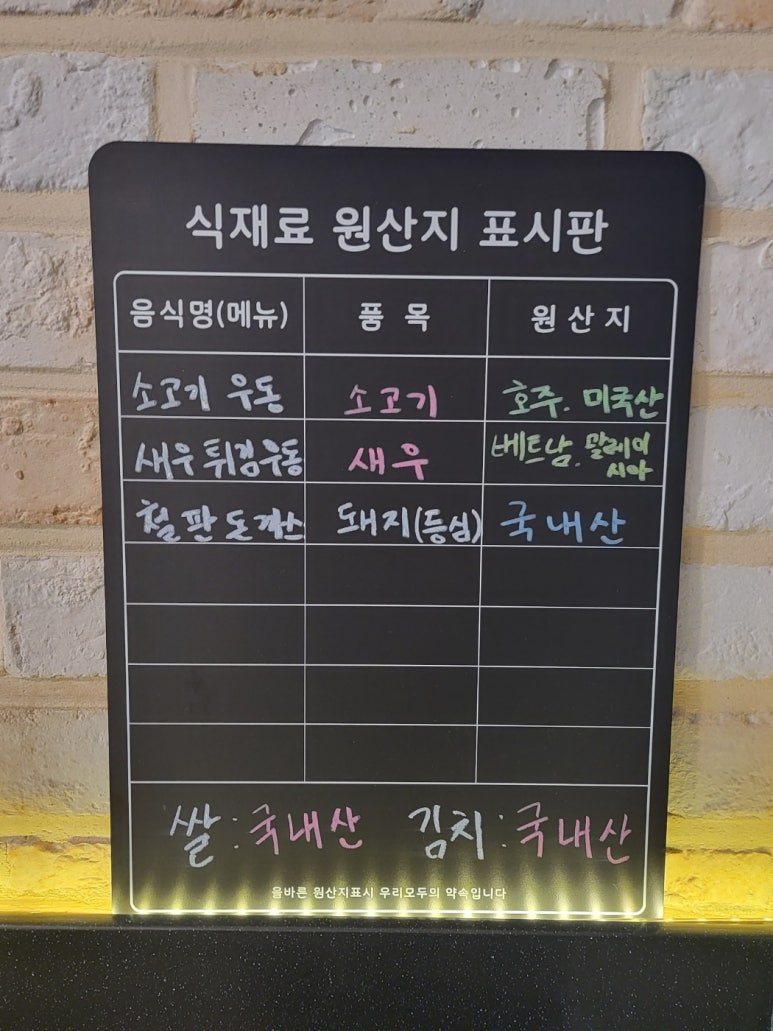 식재료 원산지 표시판
음식명(메뉴) 품 목 원 산 지
소고기 우동 소고기 호주. 미국산
새우튀김우동 새우 베트남. 말레이시아
철판돈까스 돼지(등심) 국내산
쌀 : 국내산 김치 : 국내산
올바른 원산지표시 우리모두의 약속입니다